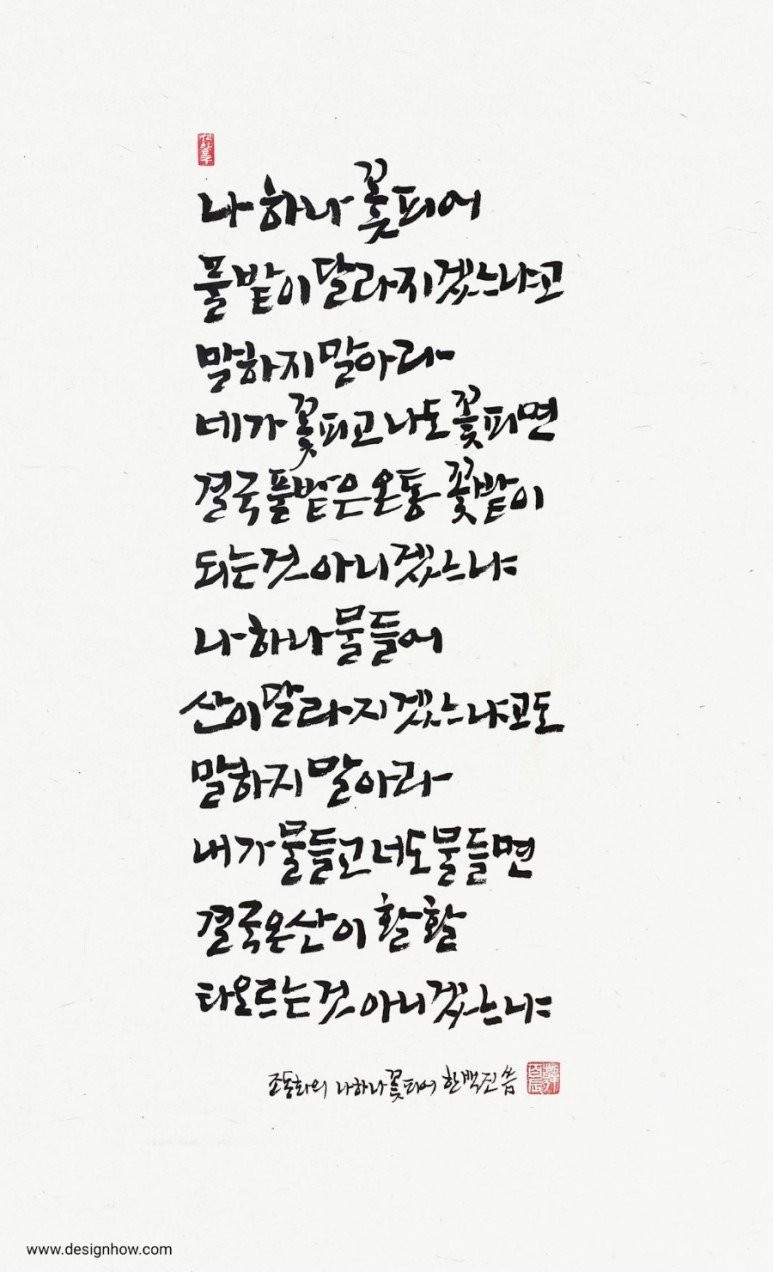 나 하나 꽃피어
풀밭이 달라지겠느냐고
말하지 말아라
네가 꽃피고 나도 꽃피면
결국 풀밭은 온통 꽃밭이
되는것 아니겠느냐
나 하나 물들어
산이 달라지겠느냐고도
말하지 말아라
내가 물들고 너도 물들면
결국 온 산이 활활
타오르는것 아니겠느냐
조동화의 나하나꽃피어 한백진 씀
www.designhow.com